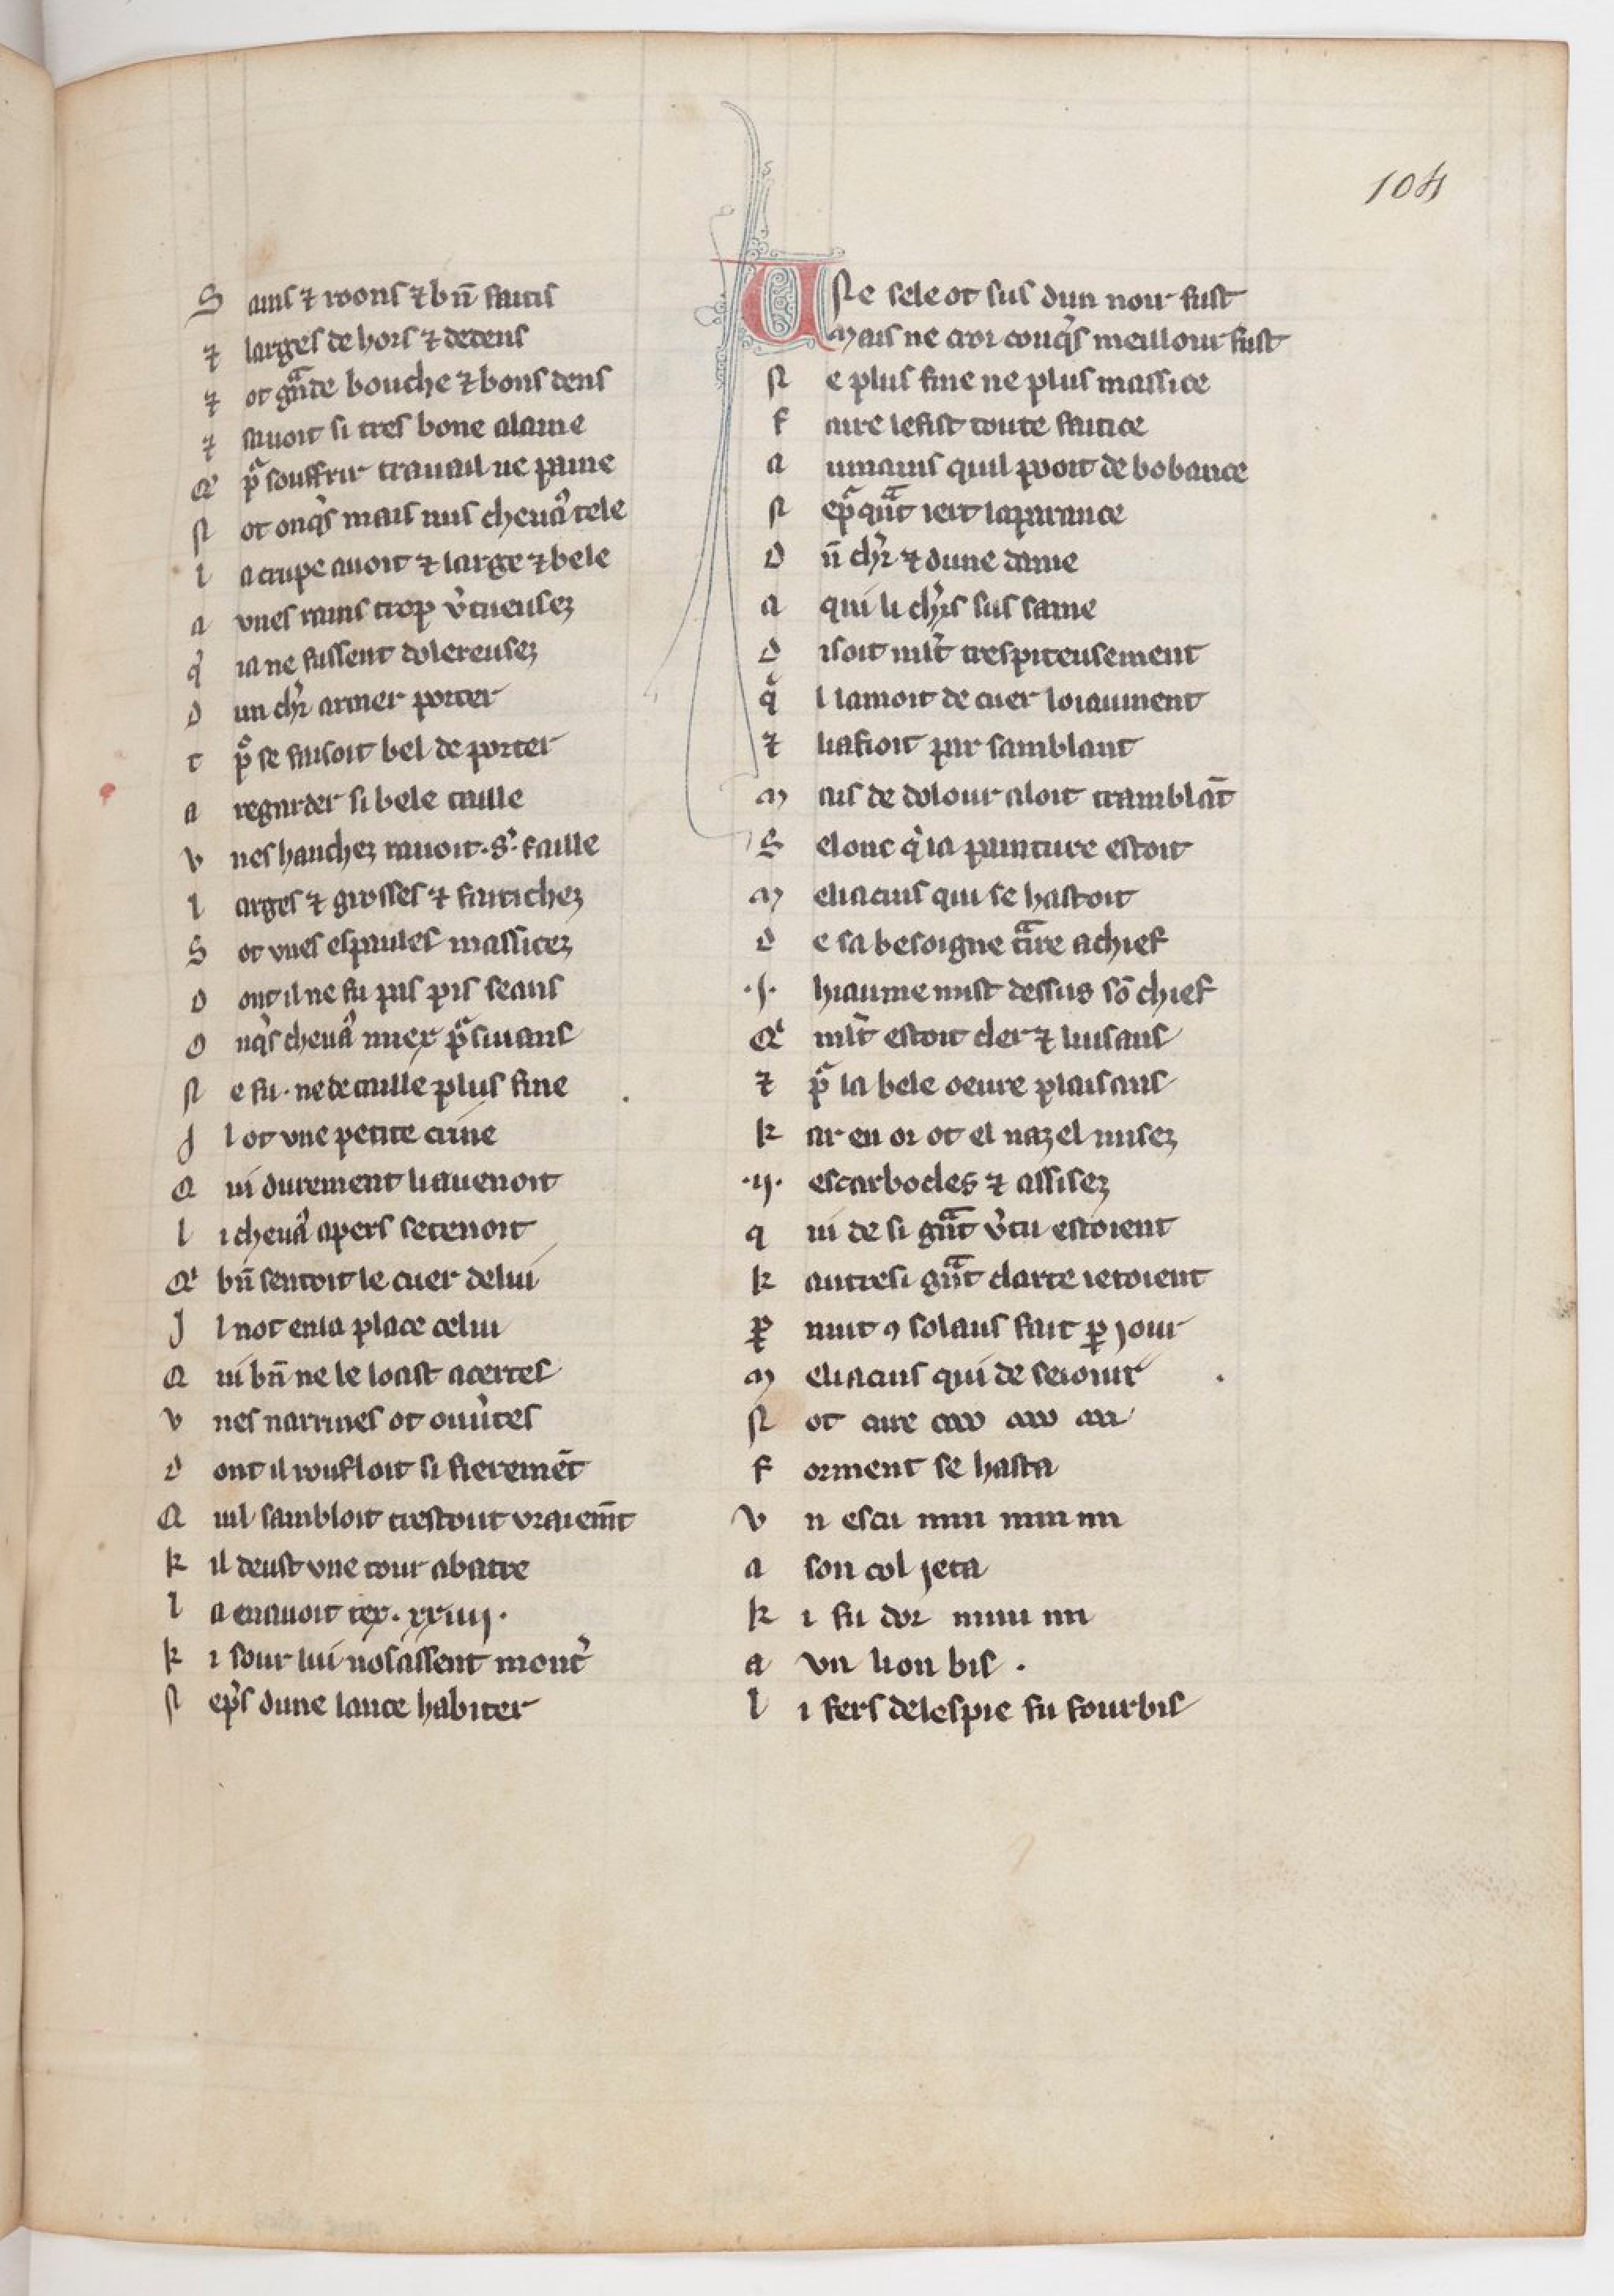 104
S ains ⁊ roons ⁊ bn̄ faitis
⁊ larges de hors ⁊ dedens
⁊ ot gͣnde bouche ⁊ bons dens
⁊ sauoit si tres bone alaine
Q' pͬ souffrir trauail ne paine
N ot onq̃s mais nus cheuaͬ tele
l a crupe auoit ⁊ large ⁊ bele
a vnes rains trop v̓tueusez
q' ia ne fussent dolereusez
D un chr̄ armer porter
t pͬ se faisoit bel de porter
a regarder si bele taille
V nes hanchez rauoit .s'. faille
l arges ⁊ grosses ⁊ faitichez
S ot vnes espaules massicez
D ont il ne fu pas pis seans
O nq̃s cheuaͬ miex pͬ siuans
N e fu . ne de taille plus fine
J l ot vne petite crine
Q ui durement li auenoit
l i cheuaͬ apers se tenoit
Q' bn̄ sentoit le cuer de lui
J l not en la place celui
Q ui bn̄ ne le loast acertes
V nes narrines ot ouu̓tes
D ont il roufloit si fieremēt
Q uil sambloit trestout vraiem̄t
k il deust vne tour abatre
l a en auoit tex . xxiiij .
k i sour lui nosassent mont̓
N ep̓s dune lance habiter
V Ne sele ot sus dun noir fust
Mais ne croi conq̃s meillour fust
N e plus fine ne plus massice
F aire le fist toute faitice
a umains quil pooit de bobance
N epͬ qͣnt iert laparance
D n̄ chr̄ ⁊ dune dame
a qui li chr̄s sus same
D isoit ml̄t trespiteusement
q' l lamoit de cuer loiaument
⁊ li afioit par samblant
M ais de dolour aloit tramblāt
S elonc q' la painture estoit
M eliacins qui se hastoit
D e sa besoigne tͣire a chief
.j. hiaume mist dessus sō chief
Q' ml̄t estoit cler ⁊ luisans
⁊ pͬ la bele oeure plaisans
k ar en or ot el nazel misez
.ij. escarbocles ⁊ assisez
q ui de si gͣnt v̓tu estoient
k autresi gͣnt clarte ietoient
P̲ nuit ꝯ solaus fait ꝑ jour
M eliacins qui de seiour
N ot cure
F orment se hasta
V n escu
a son col jeta
k i fu dor
a vn lion bis .
l i fers de lespie fu fourbis